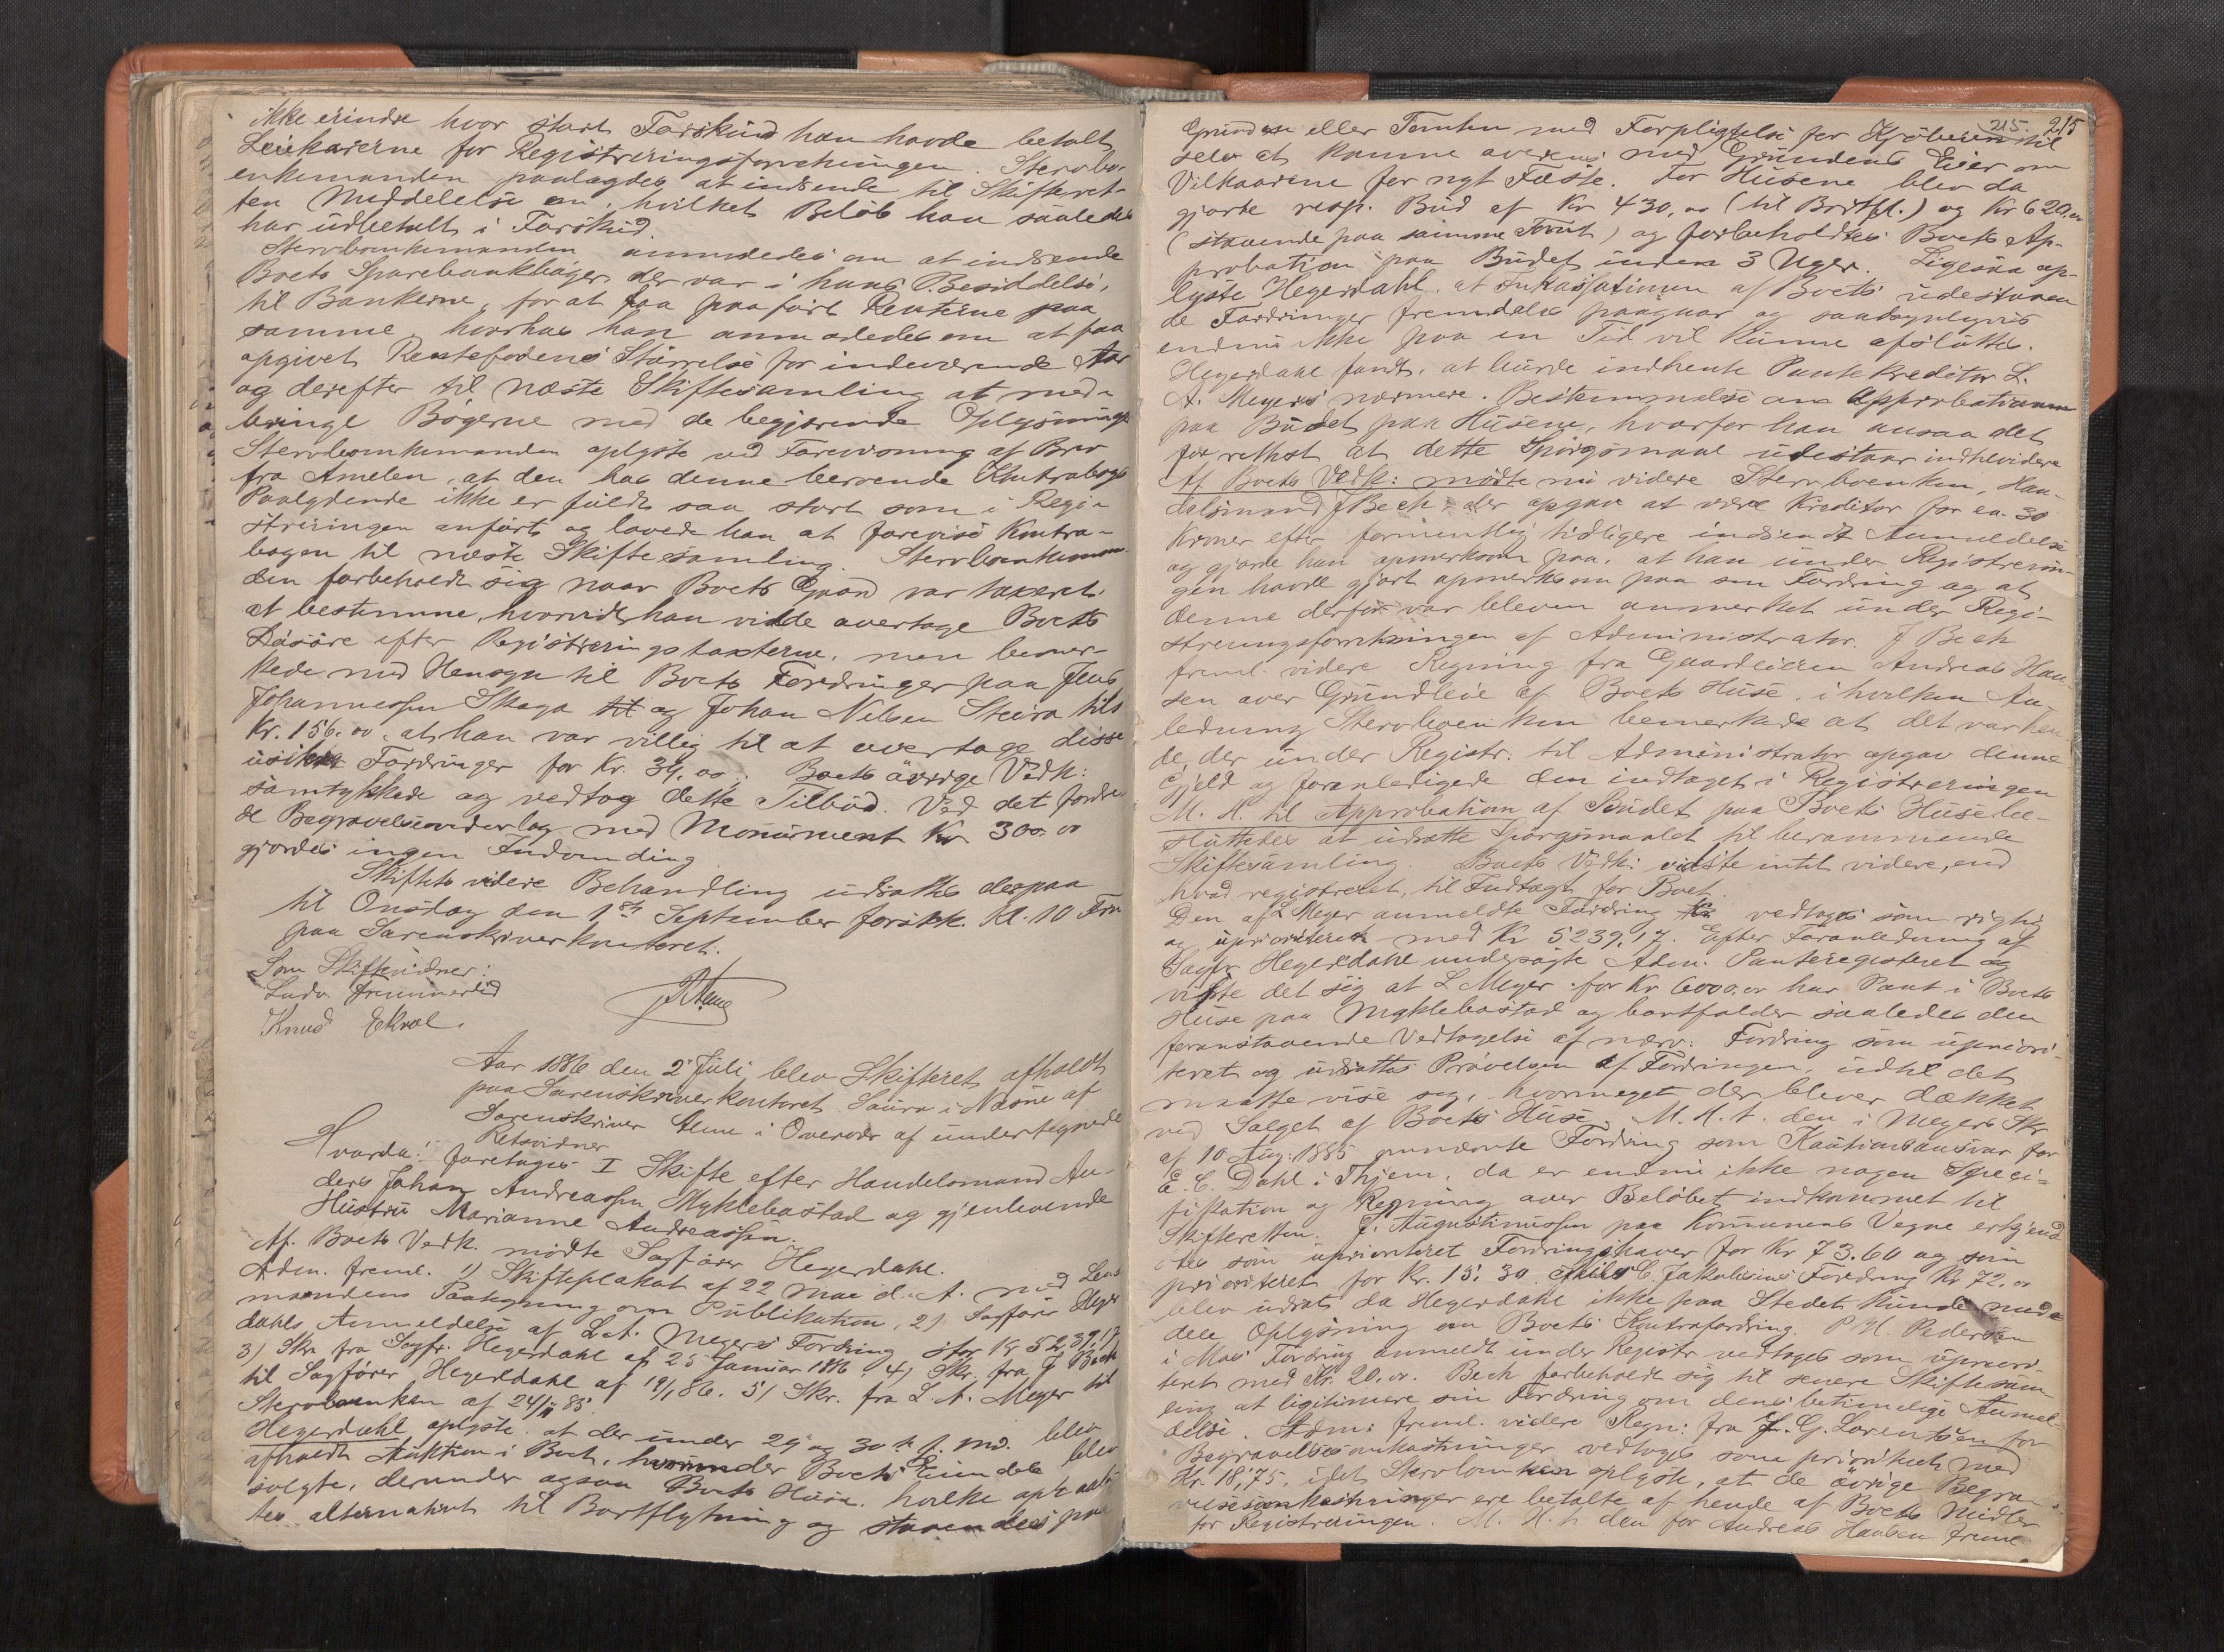 ikke erindre hvor stort Forskud han havde betalt
Leikarerne for Registreringsforretningen. Stervbo-
enkemanden paalagdes at indsende til Skifteret-
ten Meddelelse om, hvilket Beløb han saaledes
har udbetalt i Forskud.
Stervboenkemanden anmodedes om at indsende
Boets Sparebankbøger, der var i hans Besiddelse,
til Bankerne, for at faa paaført Renterne paa
samme, hvorhos han anmodedes om at faa
opgivet Rentefodens Størrelse for indeværende Aar
og derefter til næste Skiftesamling at med-
bringe Bøgerne med de begjærende Oplysninger
Stervboenkemanden oplyste ved Forevisning af Brev
fra Amelen, at den hos denne beroende Kontrabogs
Paalydende ikke er fuldt saa stort som i Regi-
streringen anført og lovede han at forevise Kontra-
bogen til næste Skiftesamling. Stervboenkeman-
den forbeholdt sig naar Boets Gaard var taxeret
at bestemme, hvorvidt han vilde overtage Boets
Løsøre efter Registreringstaxterne, men bemær-
kede med Hensyn til Boets Fordringer paa Jens
Johannessen Skaga til og Johan Nilsen Steiro tils
Kr. 156.00, at han var villig til at overtage disse
usikre Fordringer for Kr. 34.00. Boets øvrige Vedk:
samtykkede og vedtog dette Tilbud. Ved det fordre-
de Begravelsesvederlag med Monument Kr 300.00
gjordes ingen Indvending
Skiftets videre Behandling udsattes derpaa
til Onsdag den 1ste September førstk. Kl. 10 Fm
paa Sorenskriverkontoret.
Som Skiftevidner:
Ludv
Knud Ekrol.
Aar 1886 den 2 Juli blev Skifteret afholdt
paa Sorenskriverkontoret Saura i Næsne af
Sorenskriver Aune i Overvær af undertegnede
Retsvidner
Hvorda: foretoges I Skifte efter Handelsmand An-
ders Johan Andreassen Myklebostad og gjenlevende
Hustru Marianne Andreassen.
Af Boets Vedk. mødte Sagfører Hegerdahl.
Adm. freml. 1) Skifteplakat af 22 Mai d. A. med Lens-
mandens Paategning om Publikation, 2) Sagfører Heger
dahls Anmeldelse af L. A. Meyers Fordring stor Kr 5239,17
3) Skr fra Sagfr. Hegerdahl af 25 Januar 1886. 4) Skr. fra J Bech
til Sagfører Hegerdahl af 19/1 86. 5) Skr. fra L A. Meyer til
Stervboenken af 24/11 85.
Hegerdahl oplyste at der under 29 og 30 te f. Md. blev
afholdt Auktion i Boet, hvorunder Boets Eiendele blev
solgte, derunder ogsaa Boets Huse, hvilke opraab-
tes alternativt til Bortflytning og staaendes paa
215. 215
Grunden eller Tomten med Forpligtelse for Kjøberen til
selv at komme overens med Grundens Eier om
Vilkaarene for nyt Fæste. For Husene blev da
gjorte resp. Bud af Kr 430,00 (til Bortfl.) og Kr 620,00
(staaende paa samme Tomt) og forbeholdtes Boets Ap-
probation paa Budet inden 3 Uger. Ligesaa op-
lyste Hegerdahl, at Inkassationen af Boets udestaaen
de Fordringer fremdeles paagaar og sandsynligvis
endnu ikke paa en Tid vil kunne afsluttes.
Hegerdahl fandt, at burde indhente Pantekreditor L.
A. Meyers nærmere Bestemmelse om Approbationen
paa Budet paa Husene, hvorfor han ansaa det
for rettest at dette Spørgsmaal udestaar indtil videre
Af Boets Vedk: mødte nu videre Stervboenken, Han-
delsmand J Bech der opgav at være Kreditor for ca. 30
Kroner efter formentlig tidligere indsendt Anmeldelse
og gjorde han opmerksom paa, at han under Registrerin-
gen havde gjort opmerksom paa sin Fordring og at
denne derfor var bleven anmerket under Regi-
streringsforretningen af Administrator. J Bech
freml. videre Regning fra Gaardeieren Andreas Han-
sen over Grundleie af Boets Huse, i hvilken An-
ledning Stervboenken bemerkede at det var hen
de, der under Registr. til Administrator opgav denne
Gjeld og foranledigede den indtaget i Registreringen
M. H. til Approbation af Budet paa Boets Huse be-
sluttedes at udsætte Spørgsmaalet til berammende
Skiftesamling. Boets Vedk: vidste intet videre, end
hvad registreret, til Indtægt for Boet.
Den af L Meyer anmeldte Fordring Kr vedtoges som rigtig
og uprioriteret med Kr 5239,17. Efter Foranledning af
Sagfr Hegerdahl undersøgte Adm. Panteregisteret og
viste det sig at L Meyer for Kr 6000,00 har Pant i Boets
Huse paa Myklebostad og bortfalder saaledes den
foranstaaende Vedtagelse af nærv: Fordring som upriori-
teret og udsattes Prøvelsen af Fordringen, indtil det
maatte vise sig, hvormeget der bliver dækket
ved Salget af Boets Huse. M. H. t. den i Meyers Skr
af 10 Aug. 1885 omnævnte Fordring som Kautionsansvar for
E. C. Dahl i Thjem, da er endnu ikke nogen Speci-
fikation og Regning over Beløbet indkommet til
Skifteretten. J. Augustinussen paa Kommunens Vegne erkjend
tes som uprioriteret Fordringshaver for Kr 73.60 og som
prioriteret for Kr. 15.30. C. Jakobsens Fordring Kr 72.00
blev udsat da Hegerdahl ikke paa Stedet kunde med-
dele Oplysning om Boets Kontrafordring. P. M. Pedersen
i Mos Fordring anmeldt under Registr vedtoges som upriori-
teret med Kr. 20.00. Bech forbeholdt sig til senere Skiftesam-
ling at legitimere sin Fordring om dens betimelige Anmel-
delse. Adm: freml. videre Regn: fra J. G. Lorentsen for
Begravelsesomkostninger vedtoges som prioriteret med
Kr. 18,75, idet Stervboenken oplyste, at de øvrige Begra-
velsesomkostninger ere betalte af hende af Boets Midler
før Registreringen. M. H. t. den for Andreas Hansen freml